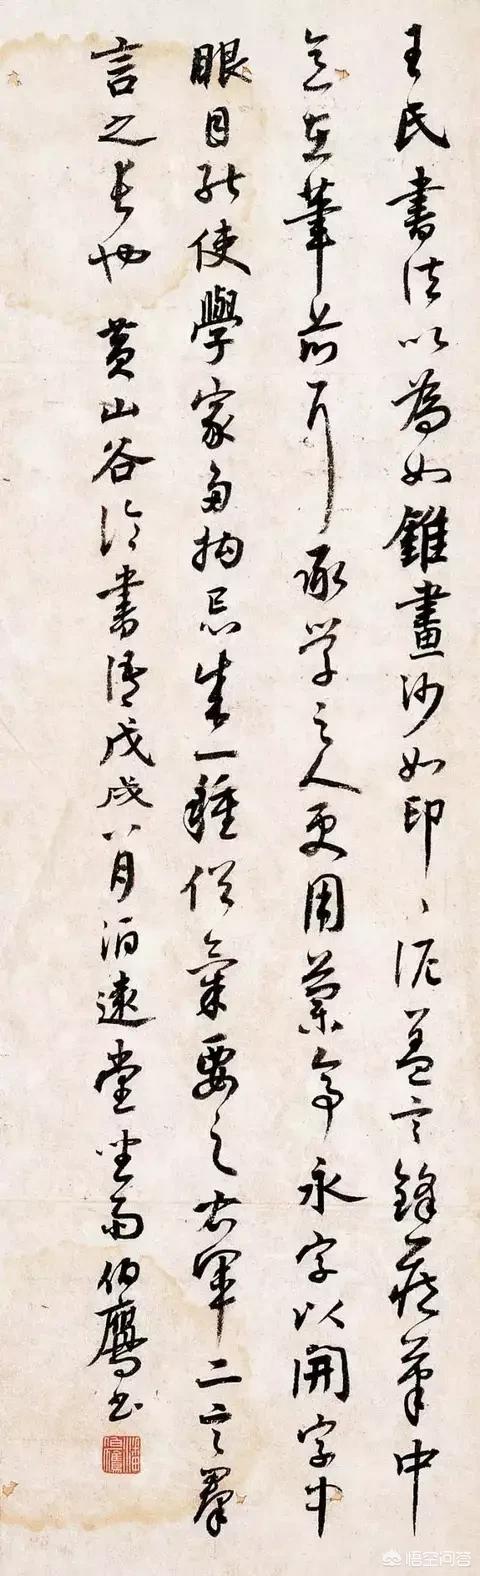 王氏書法以為如錐畫沙如印〻泥蓋言鋒藏筆中
意在筆前耳承學之人更用蘭亭永字以開字中
眼目能使學家多拘忌成一種俗氣要之右軍二言羣
言之長也 黃山谷論書 戊戌八月泊遠堂坐雨伯鷹書
悟空问答